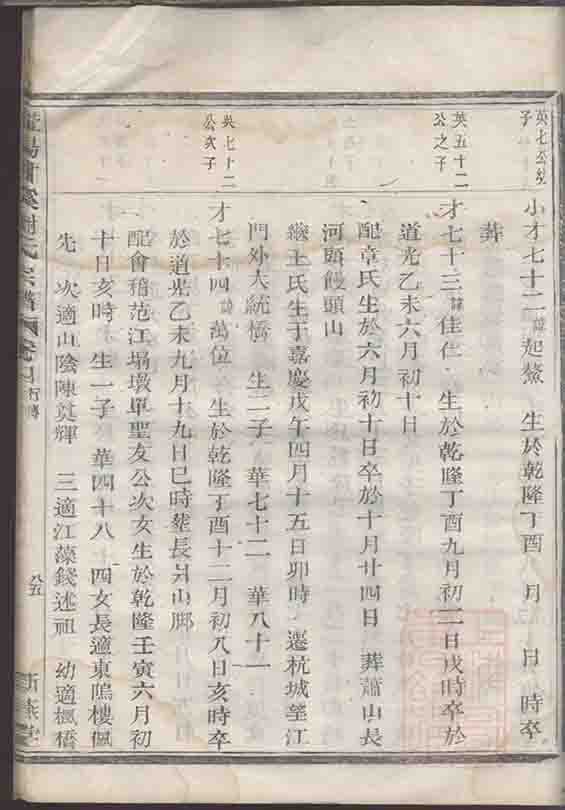 英七公幼子
小才七十二諱起鰲 生於乾隆丁酉八月 日 時卒
葬
英五十二公之子
才七十三諱佳仁 生於乾隆丁酉九月初二日戌時卒於
道光乙未六月初十日
配章氏生於六月初十日卒於十月廿四日 葬蕭山長
河頭饅頭山
繼王氏生于嘉慶戊午四月十五日卯時 遷杭城望江
門外大統橋 生二子 華七十二 華八十一
英七十二公次子
才七十四諱萬位 生於乾隆丁酉十二月初八日亥時卒
於道光乙未九月十九日巳時葬長山脚
配會稽范江塌墩單聖友公次女生於乾隆壬寅六月初
十日亥時 生一子 華四十八 四女長適東鳴樓佩
先 次適山陰陳 輝 三適江藻錢述祖 幼適楓橋
暨陽 溪 氏宗譜 卷 行傳
八五